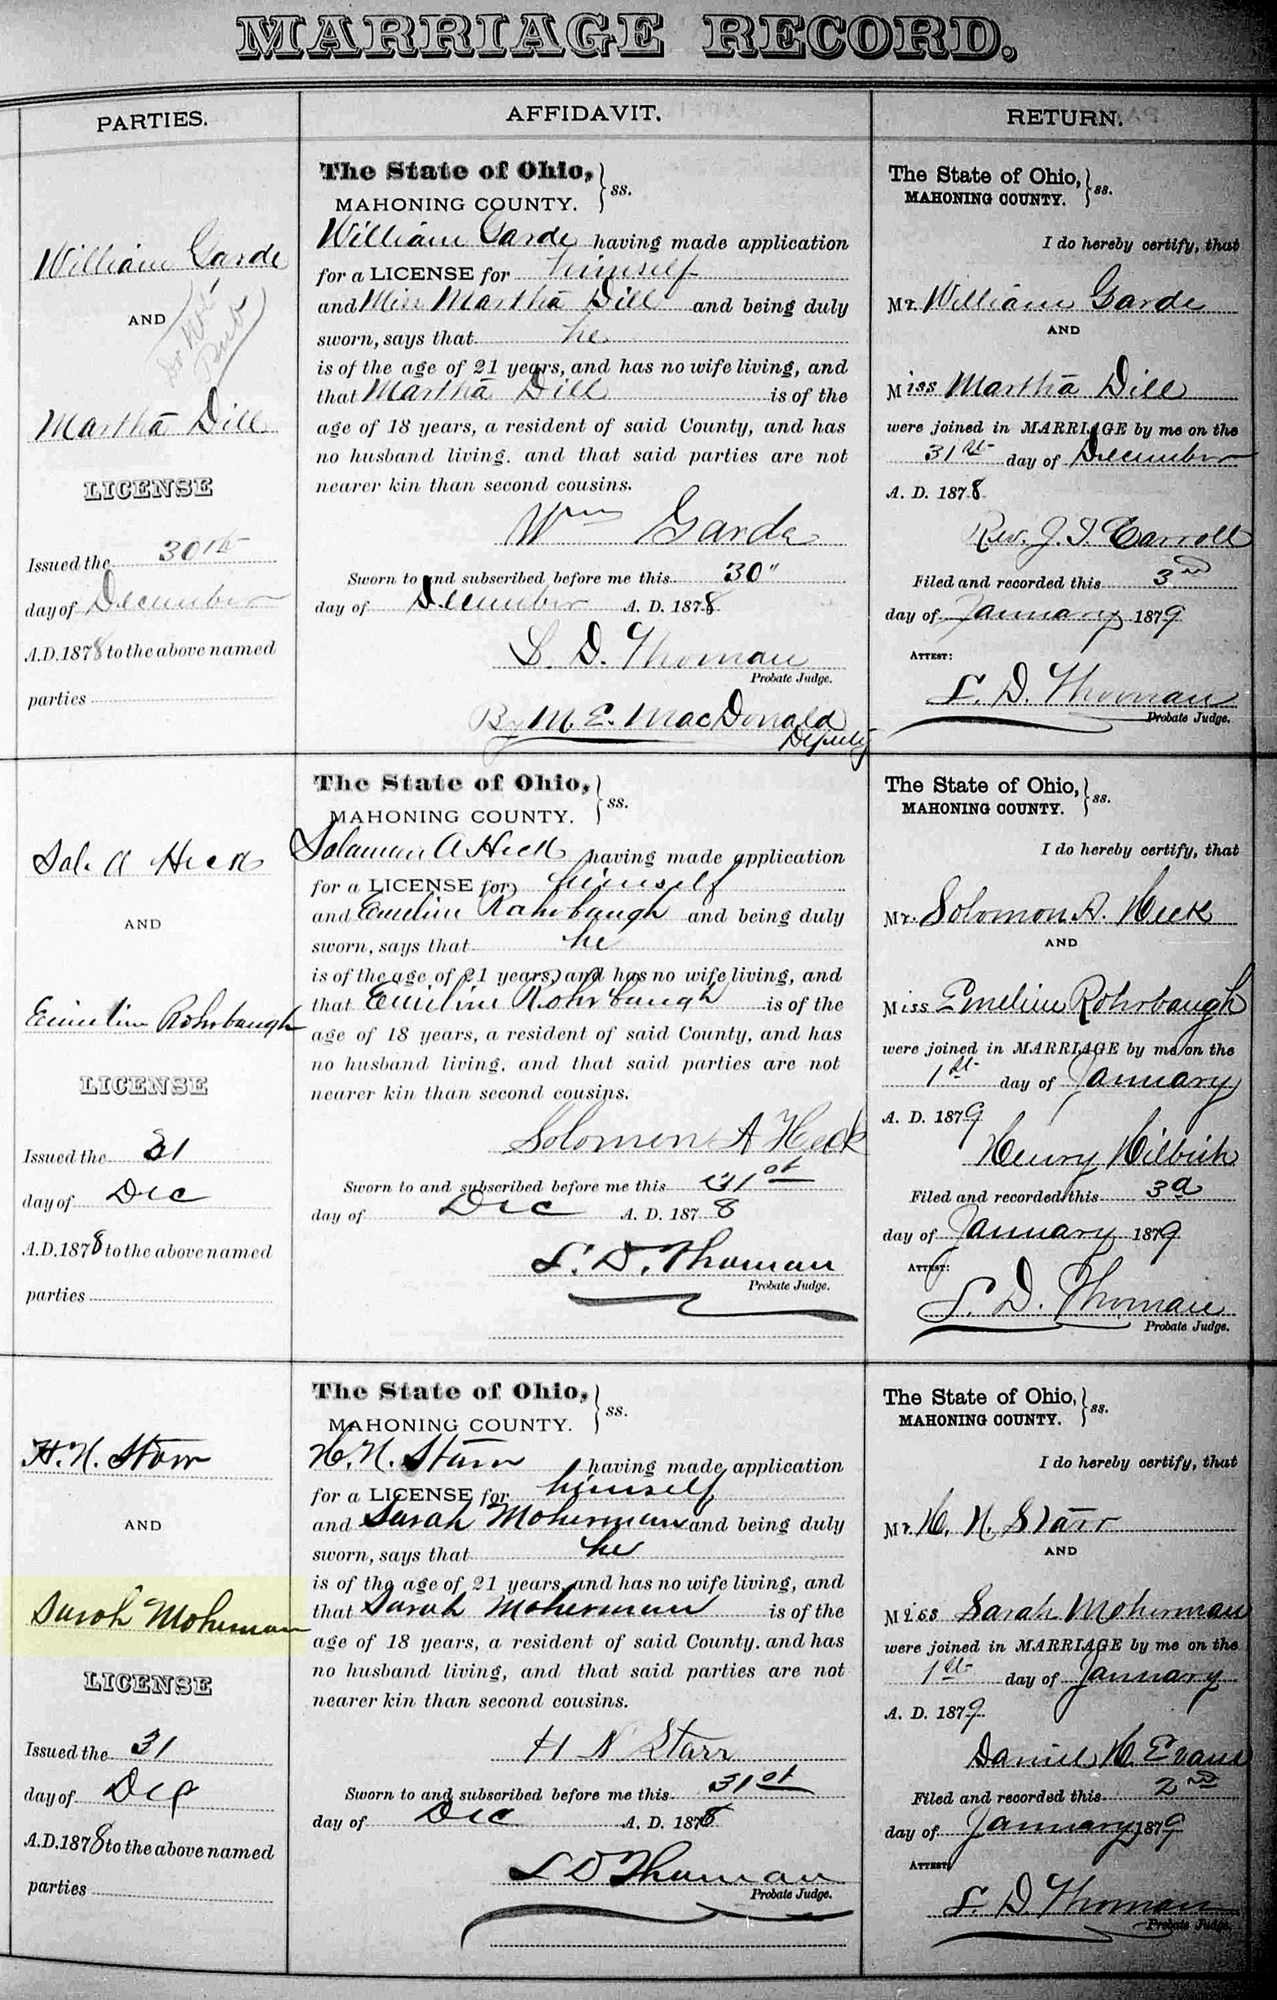 MARRIAGE RECORD.
PARTIES.
William Garde
AND
Do Not
Pub
Martha Dill
LICENSE
Issued the 30th
day of December
A.D. 1878 to the above named
parties
AFFIDAVIT.
The State of Ohio,
MAHONING COUNTY. } ss.
William Garde having made application
for a LICENSE for himself
and Miss Martha Dill and being duly
sworn, says that he
is of the age of 21 years, and has no wife living, and
that Martha Dill is of the
age of 18 years, a resident of said County, and has
no husband living. and that said parties are not
nearer kin than second cousins.
Wm Garde
Sworn to and subscribed before me this 30"
day of December A. D. 1878
L. D. Thoman
Probate Judge.
By M. E. MacDonald
Deputy
RETURN.
The State of Ohio,
MAHONING COUNTY. } ss.
I do hereby certify, that
Mr. William Garde
AND
Miss Martha Dill
were joined in MARRIAGE by me on the
31st day of December
A. D. 1878
Rev. J. T. Carroll
Filed and recorded this 3rd
day of January 1879
ATTEST:
L. D. Thoman
Probate Judge.
Sol. A Heck
AND
Emeline Rohrbaugh
LICENSE
Issued the 31
day of Dec
A.D. 1878 to the above named
parties
The State of Ohio,
MAHONING COUNTY. } ss.
Soloman A Heck having made application
for a LICENSE for himself
and Emeline Rohrbaugh and being duly
sworn, says that he
is of the age of 21 years, and has no wife living, and
that Emeline Rohrbaugh is of the
age of 18 years, a resident of said County, and has
no husband living, and that said parties are not
nearer kin than second cousins.
Solomon A Heck
Sworn to and subscribed before me this 31st
day of Dec A. D. 1878
L. D. Thoman
Probate Judge.
The State of Ohio,
MAHONING COUNTY. } ss.
I do hereby certify, that
Mr. Solomon A. Heck
AND
Miss Emeline Rohrbaugh
were joined in MARRIAGE by me on the
1st day of January
A. D. 1879
Henry Hilbish
Filed and recorded this 3d
day of January 1879
ATTEST:
L. D. Thoman
Probate Judge.
H. N. Starr
AND
Sarah Moherman
LICENSE
Issued the 31
day of Dec
A.D. 1878 to the above named
parties
The State of Ohio,
MAHONING COUNTY. } ss.
H. N. Starr having made application
for a LICENSE for himself
and Sarah Moherman and being duly
sworn, says that he
is of the age of 21 years, and has no wife living, and
that Sarah Moherman is of the
age of 18 years, a resident of said County. and has
no husband living, and that said parties are not
nearer kin than second cousins.
H N Starr
Sworn to and subscribed before me this 31st
day of Dec A. D. 1878
L D Thoman
Probate Judge.
The State of Ohio,
MAHONING COUNTY. } ss.
I do hereby certify, that
Mr. H. N. Starr
AND
Miss Sarah Moherman
were joined in MARRIAGE by me on the
1st day of January
A. D. 1879
Daniel H Evans
Filed and recorded this 2nd
day of January 1879
ATTEST:
L. D. Thoman
Probate Judge.